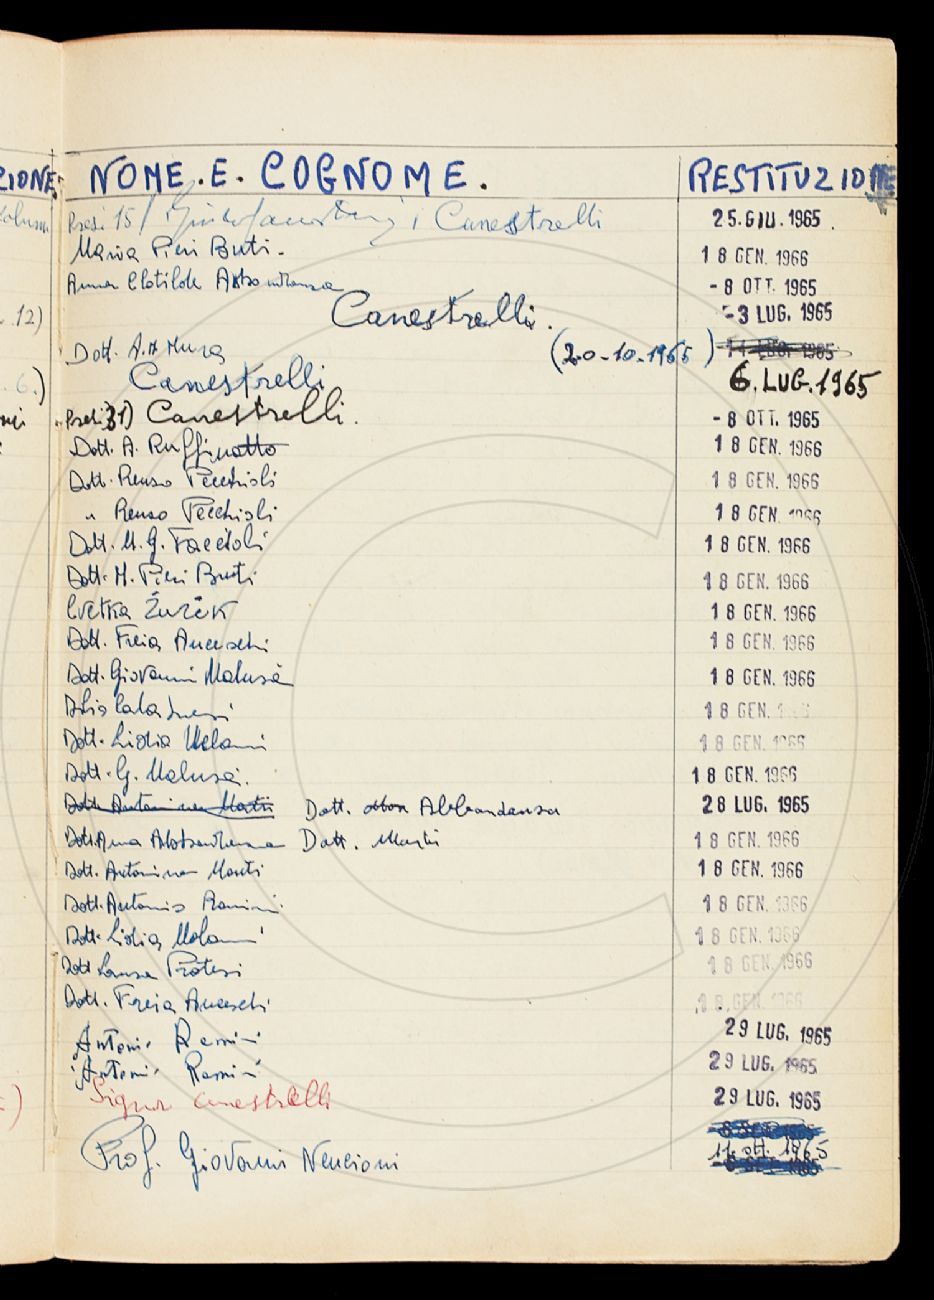 ZIONE. NOME. E. COGNOME. RESTITUZIONE
Presi 15/ Canestrelli 25. GIU. 1965
Maria Pieri Buti. 18 GEN. 1966
Anna Clotilde - 8 OTT. 1965
12) Canestrelli. - 3 LUG. 1965
Dott. A. M. Mura (20-10-1965)
6.) Canestrelli 6. LUG. 1965
Presi 31) Canestrelli. - 8 OTT. 1965
Dott. A. Ruffinatto 18 GEN. 1966
Dott. Renzo Pecchioli 18 GEN. 1966
" Renzo Pecchioli 18 GEN. 1966
Dott. M. G. Faccioli 18 GEN. 1966
Dott. M. Pieri Buti 18 GEN. 1966
Cvetka Žurek 18 GEN. 1966
Dott. Freia Anceschi 18 GEN. 1966
Dott. Giovanni Malusà 18 GEN. 1966
18 GEN.
Dott. Lidia Melani 18 GEN. 1966
Dott. G. Malusà. 18 GEN. 1966
Dott. Antonina Monti Dott. Abbondanza 28 LUG. 1965
Dott. Anna Dott. Monti 18 GEN. 1966
Dott. Antonina Monti 18 GEN. 1966
Dott. Antonio Ramini 18 GEN. 1966
Dott. Lidia Melani 18 GEN. 1966
Dott. Laura Protesi 18 GEN. 1966
Dott. Freia Anceschi 18. GEN. 1966
Antonio Ramini 29 LUG. 1965
Antonio Ramini 29 LUG. 1965
Signor Canestrelli 29 LUG. 1965
Prof. Giovanni Nencioni 11 ott. 1965